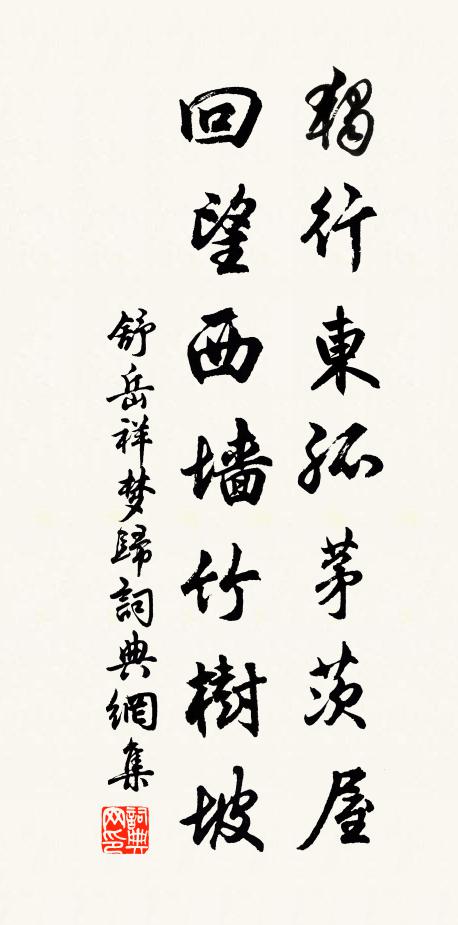 獨行東孤茅茨屋
回望西墻竹樹坡
舒岳祥梦歸詞典網集
詞典
网印